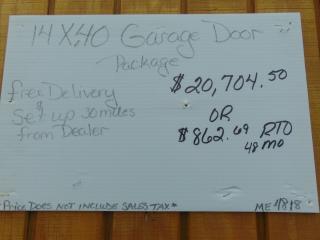 14 X 40 Garage Door
Package
$20,704.50
free Delivery
&
Set up 30 miles
from Dealer
OR
$862.69 RTO
48 mo
*Price Does NOT INCLUDE SALES TAX*
ME 4818